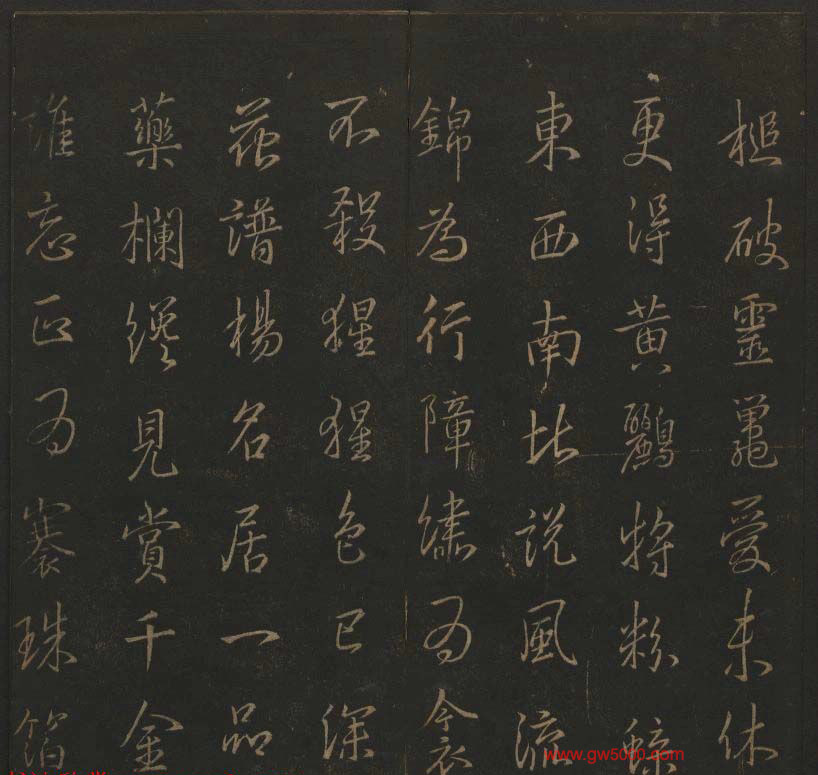 槌破靈鼍愛未休
更得黃鸝將粉蝶
東西南北說風流
錦為行障繡為衾
不殺猩猩色已深
花譜楊名居一品
藥欄纔見賞千金
難忘正為褰珠箔
www.gw5000.com